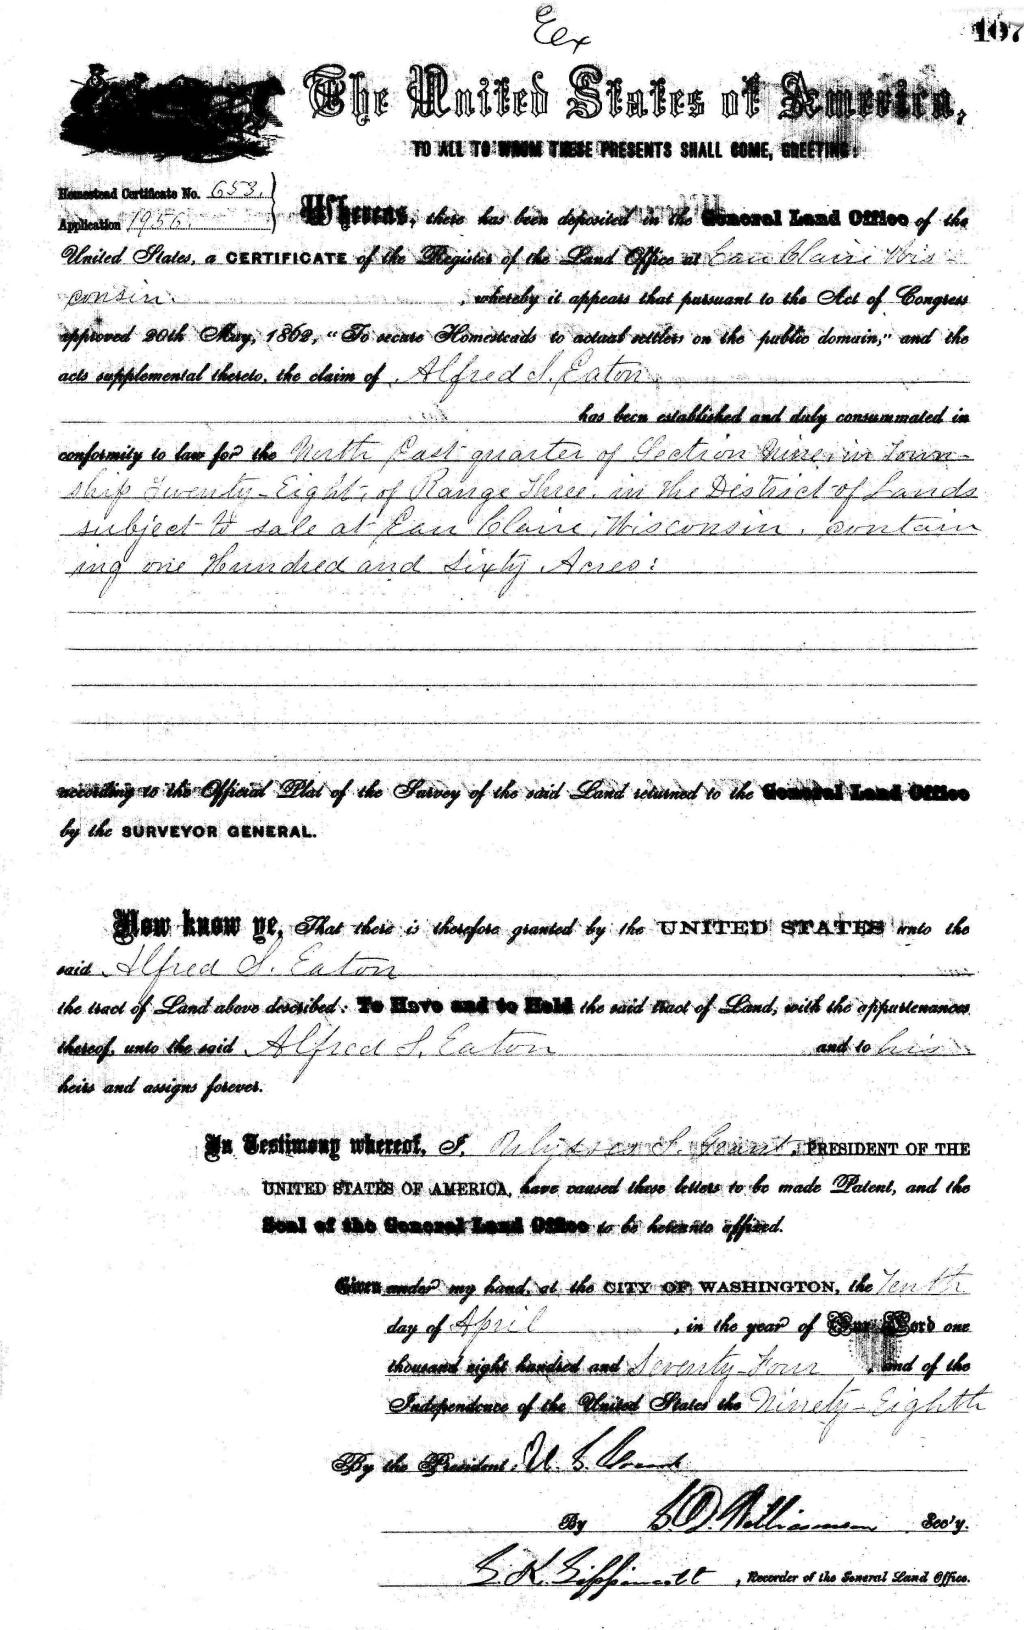 Ex
107
The United States of America,
TO ALL TO WHOM THESE PRESENTS SHALL COME, GREETING:
Homestead Certificate No. 653.
Application 1956.
Whereas, there has been deposited in the General Land Office of the
United States, a CERTIFICATE of the Register of the Land Office at Eau Claire Wis-
consin. , whereby it appears that pursuant to the Act of Congress
approved 20th May, 1862, "To secure Homesteads to actual settlers on the public domain," and the
acts supplemental thereto, the claim of Alfred S. Eaton
has been established and duly consummated in
conformity to law for the North East quarter of Section Nine, in Town-
ship Twenty-Eight, of Range Three, in the District of Lands
subject to sale at Eau Claire, Wisconsin, contain
ing one Hundred and Sixty Acres:
according to the Official Plat of the Survey of the said Land returned to the General Land Office
by the SURVEYOR GENERAL.
Now know ye, That there is therefore granted by the UNITED STATES unto the
said Alfred S. Eaton
the tract of Land above described: To Have and to Hold the said tract of Land, with the appurtenances
thereof, unto the said Alfred S. Eaton and to his
heirs and assigns forever.
In Testimony whereof, I, Ulysses S. Grant, PRESIDENT OF THE
UNITED STATES OF AMERICA, have caused these letters to be made Patent, and the
Seal of the General Land Office to be hereunto affixed.
Given under my hand, at the CITY OF WASHINGTON, the Tenth
day of April , in the year of Our Lord one
thousand eight hundred and Seventy-Four , and of the
Independence of the United States the Ninety-Eighth
By the President: U. S. Grant
By S. D. Williamson Sec'y.
L. K. Lippincott , Recorder of the General Land Office.